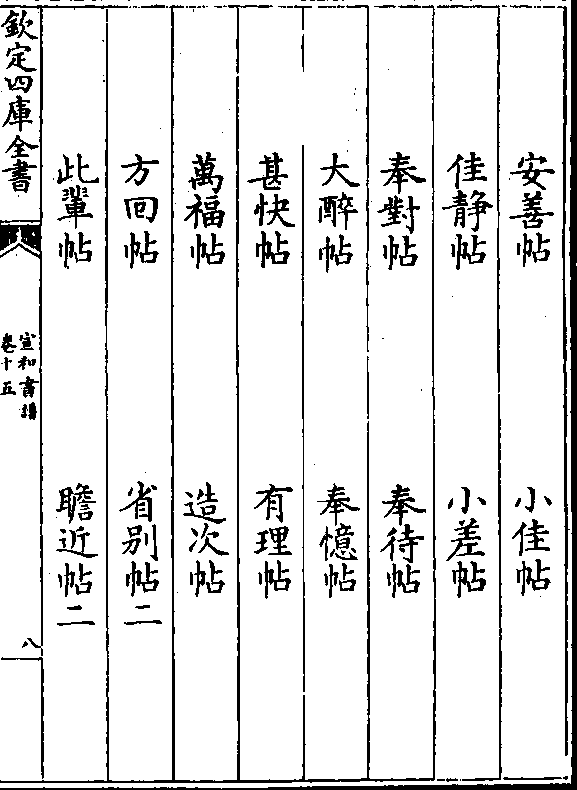 安善帖 小佳帖
佳靜帖 小差帖
奉對帖 奉待帖
大醉帖 奉憶帖
甚快帖 有理帖
萬福帖 造次帖
方回帖 省别帖二
此輩帖 瞻近帖二
欽定四庫全書
宣和書譜
卷十五
八